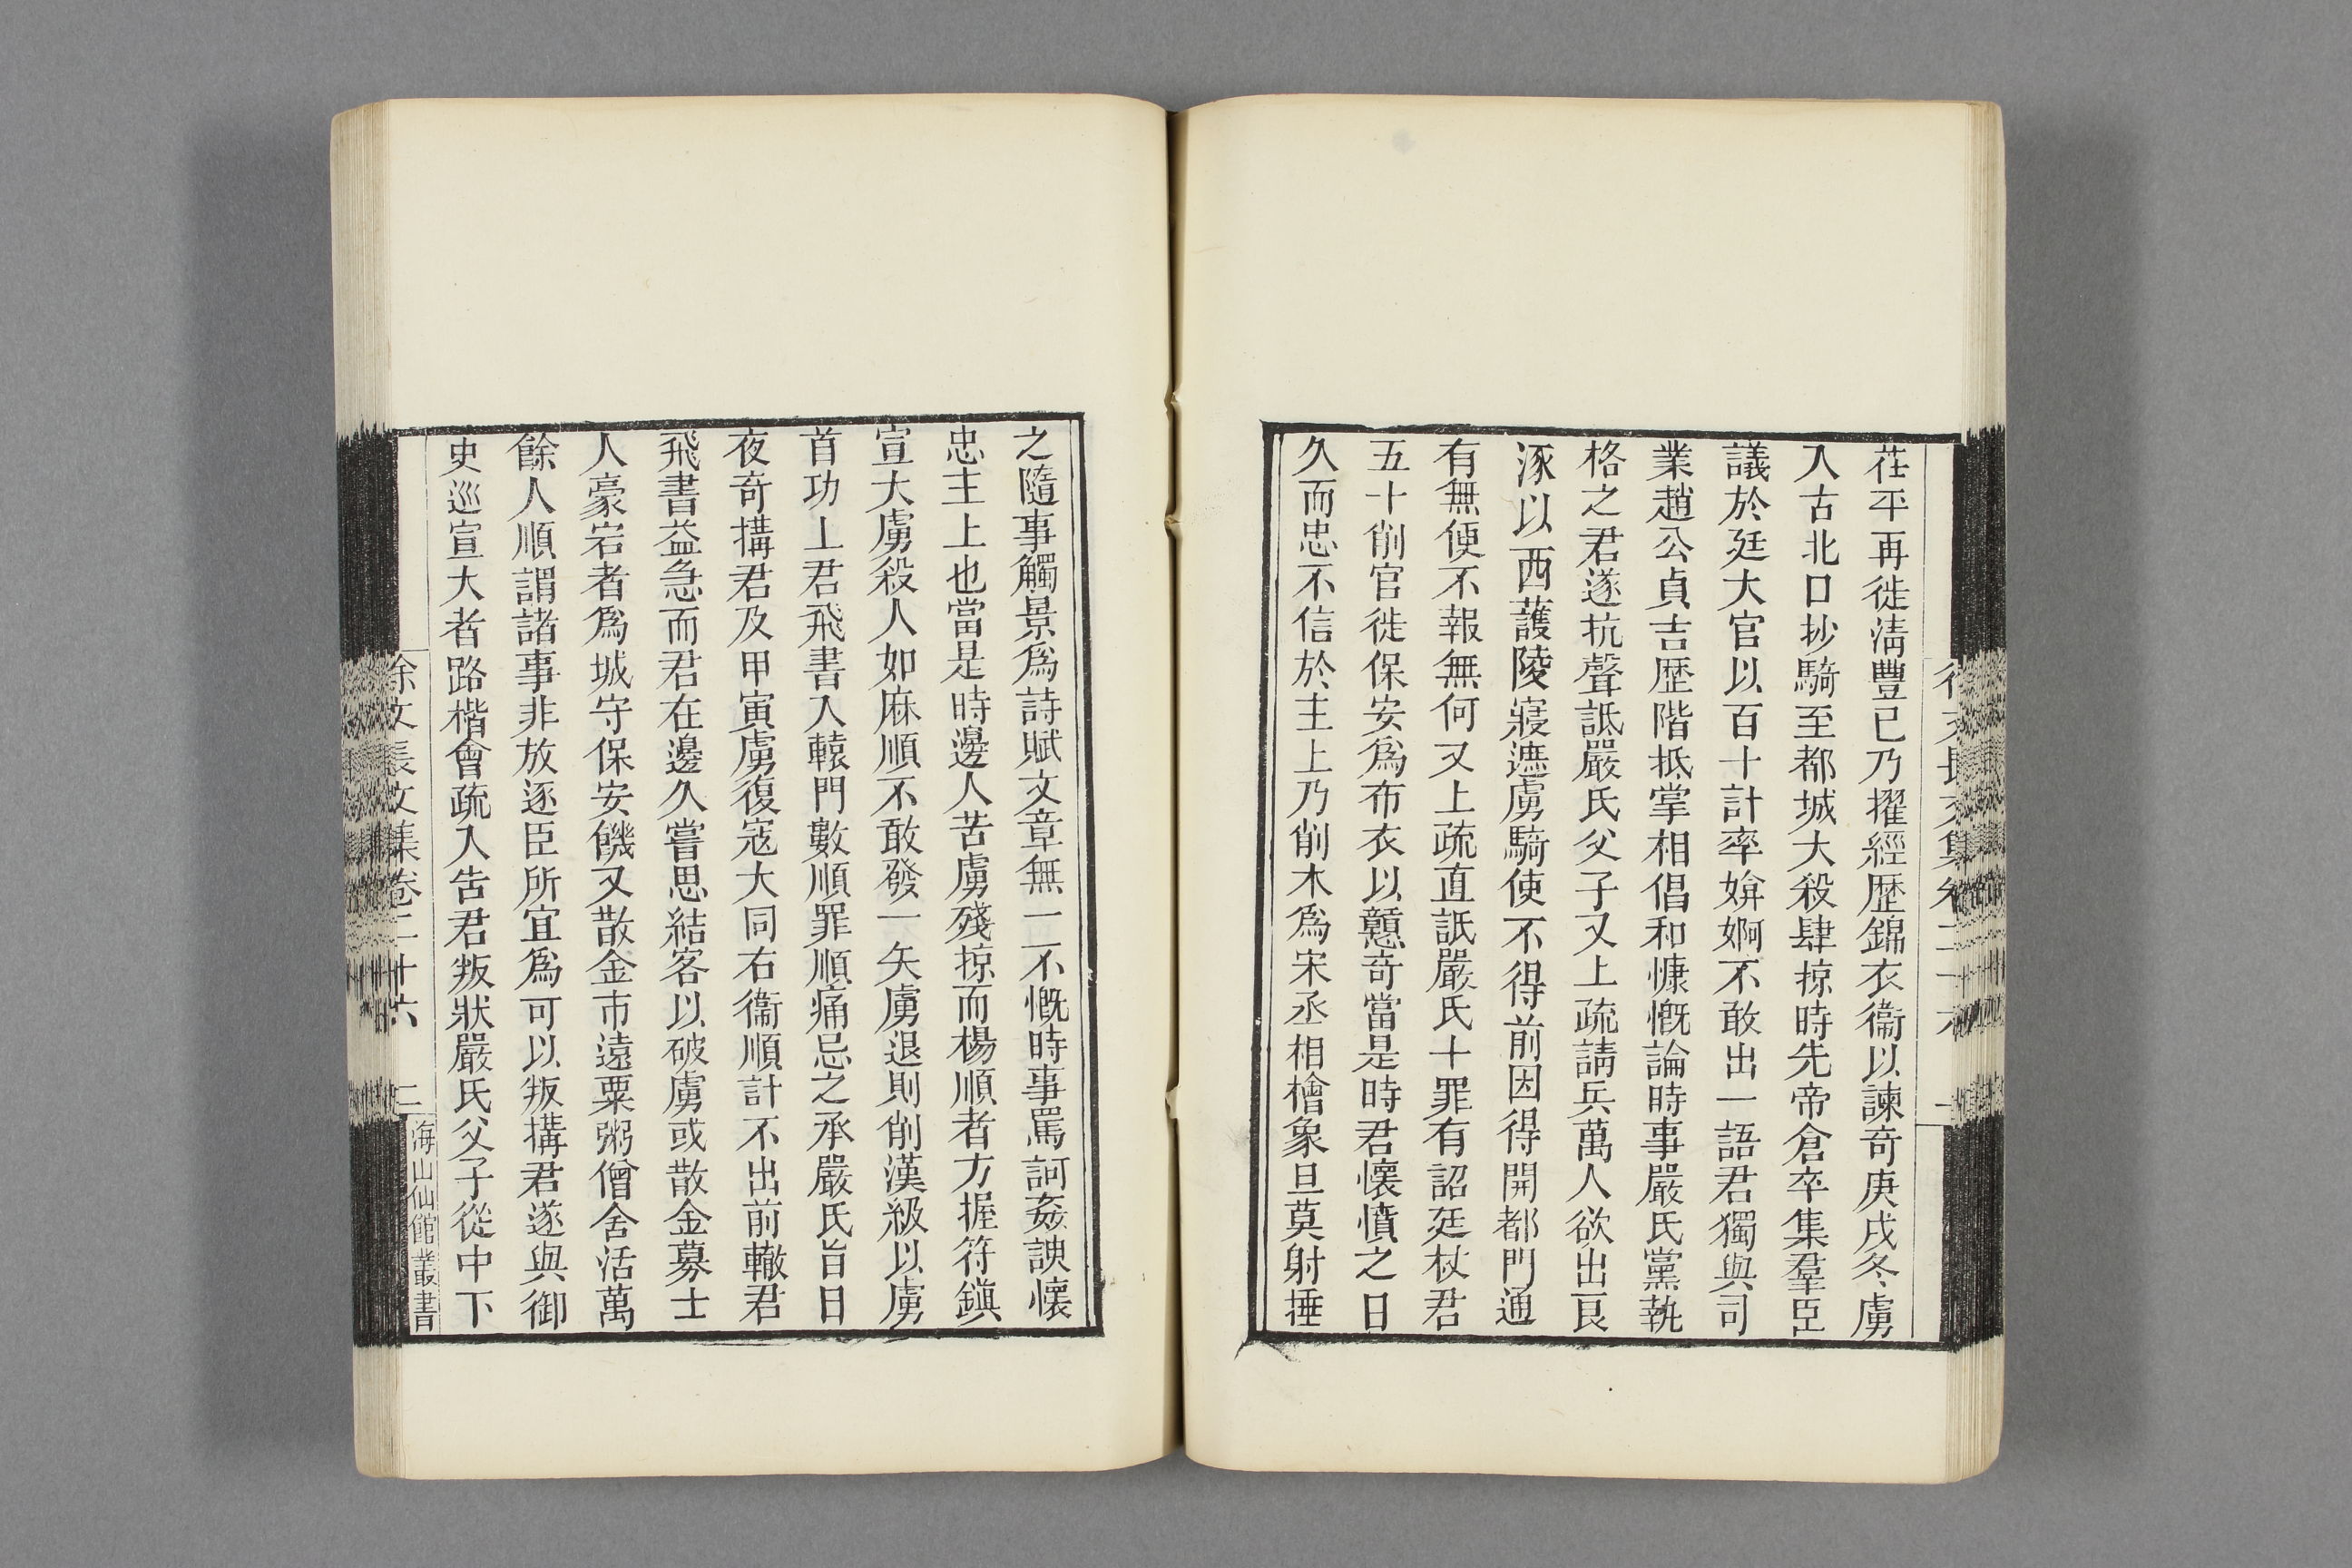 茌平再徙淸豐已乃擢經歴錦衣衞以諫奇庚戌冬虜
入古北口抄騎至都城大殺肆掠時先帝倉卒集羣臣
議於廷大官以百十計率媕婀不敢出一語君獨與司
業趙公貞吉歴階抵掌相倡和慷慨論時事嚴氏黨執
格之君遂抗聲詆嚴氏父子又上疏請兵萬人欲出良
涿以西護陵寢遮虜騎使不得前因得開都門通
有無便不報無何又上疏直詆嚴氏十罪有詔廷杖君
五十削官徙保安爲布衣以戇奇當是時君懷憤之日
久而忠不信於主上乃削木爲宋丞相檜象旦莫射捶
之隨事觸景爲詩賦文章無一不慨時事罵訶姦諛懷
忠主上也當是時邊人苦虜殘掠而楊順者方握符鎭
宣大虜殺人如麻順不敢發一矢虜退則削漢級以虜
首功上君飛書入轅門數順罪順痛忌之承嚴氏旨日
夜奇搆君及甲寅虜復寇大同右衞順計不出前轍君
飛書益急而君在邊久嘗思結客以破虜或散金募士
人豪宕者爲城守保安饑又散金市遠粟粥僧舍活萬
餘人順謂諸事非放逐臣所宜爲可以叛搆君遂與御
史巡宣大者路楷會疏入告君叛狀嚴氏父子從中下
徐文長文集卷二十六 二
海山仙館叢書